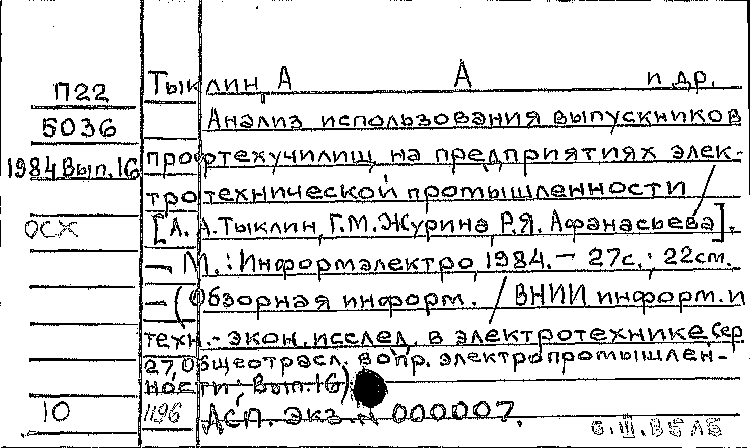 П22 Тыклин, А А и др.
5036 Анализ использования выпускников
1984 Вып.16 профтехучилищ на предприятиях элек-
тротехнической промышленности /
ОСХ [А.А.Тыклин, Г.М.Журина, Р.Я. Афанасьева].
— М.: Информэлектро, 1984. — 27с.; 22см.
— (Обзорная информ. / ВНИИ информ. и
техн.-экон. исслед. в электротехнике, Сер
27, Общеотрасл. вопр. электропромышлен-
ности; Вып.16)
10 1196 ДСП. Экз. N 000007.